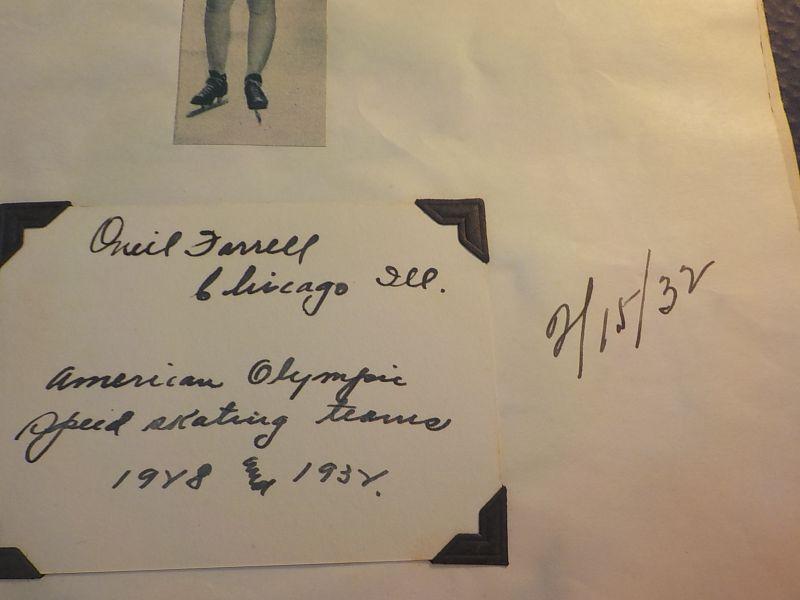 Oneil Farrell
Chicago Ill.
American Olympic
Speed skating teams
1928 and 1932.
2/15/32